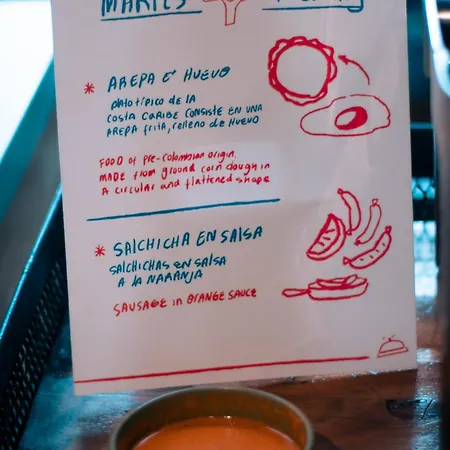 MARTES
* AREPA E' HUEVO
plato típico de la
costa caribe consiste en una
arepa frita, relleno de huevo
FOOD of pre-colombian origin.
MADE from ground corn dough in
a circular and flattened shape
* SALCHICHA EN SALSA
SALCHICHAS EN SALSA
A LA NARANJA
SAUSAGE in ORANGE SAUCE